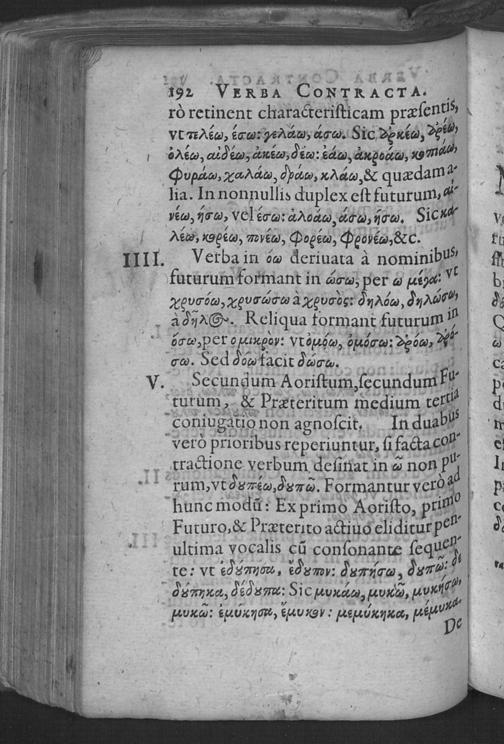 192 VERBA CONTRACTA.
rò retinent characteriſticam præſentis,
vt τελέω, έσω: γελάω, άσω. Sic ἀρκέω, ἀρέω,
ὀλέω, αἰδέω, ἀκέω, δέω: ἐάω, ἀκροάω, κοπιάω,
φυράω, χαλάω, δράω, κλάω, & quædam a-
lia. In nonnullis duplex eſt futurum, αἰ-
νέω, ήσω, vel έσω: ἀλοάω, άσω, ήσω. Sic κα-
λέω, κορέω, πονέω, φορέω, φρονέω, &c.
IIII. Verba in όω deriuata à nominibus,
futurum formant in ώσω, per ω μέγα: vt
χρυσόω, χρυσώσω à χρυσὸς: δηλόω, δηλώσω,
à δῆλος. Reliqua formant futurum in
όσω, per ο μικρὸν: vt ὀμόω, ὀμόσω: ἀρόω, ἀρό-
σω. Sed δόω facit δώσω.
V. Secundum Aoriſtum, ſecundum Fu-
turum, & Præteritum medium tertia
coniugatio non agnoſcit. In duabus
verò prioribus reperiuntur, ſi facta con-
tractione verbum deſinat in ῶ non pu-
rum, vt δυπέω, δυπῶ. Formantur verò ad
hunc modũ: Ex primo Aoriſto, primo
Futuro, & Præterito actiuo eliditur pen-
ultima vocalis cũ conſonante ſequen-
te: vt ἐδύπησα, ἔδυπον: δυπήσω, δυπῶ: δε
δύπηκα, δέδυπα: Sic μυκάω, μυκῶ, μυκήσω,
μυκῶ: ἐμύκησα, ἔμυκον: μεμύκηκα, μέμυκα.
De